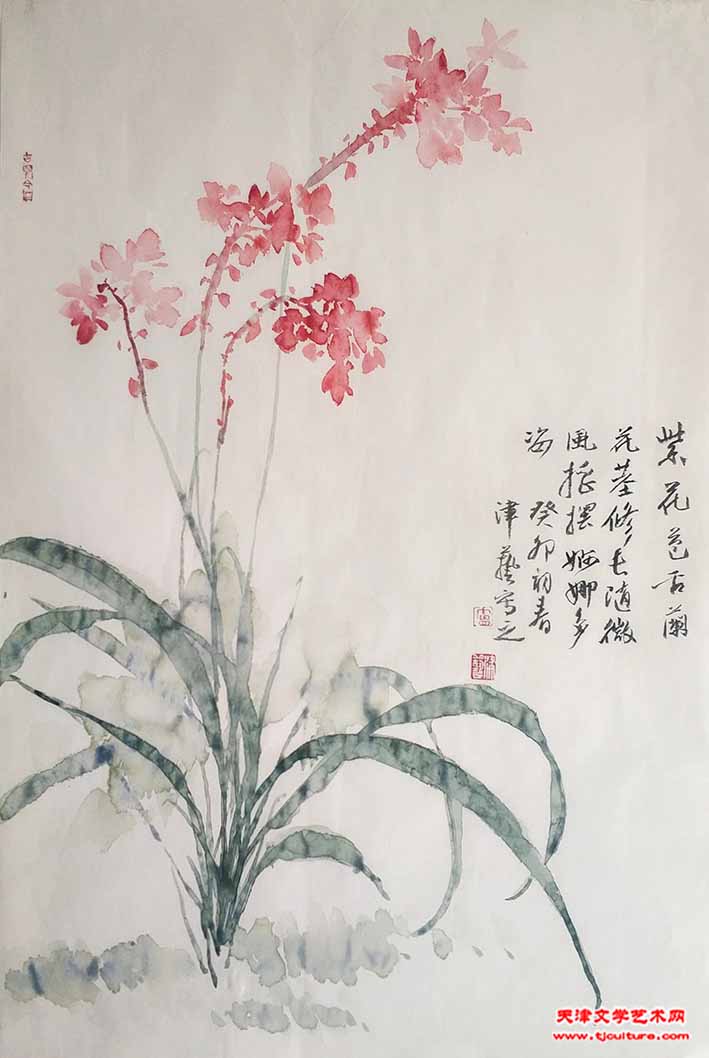 紫花苞舌蘭
花莖修长随微
風摇摆婀娜多
姿 癸卯初春
津藝写之
天津文学艺术网
www.tjculture.com